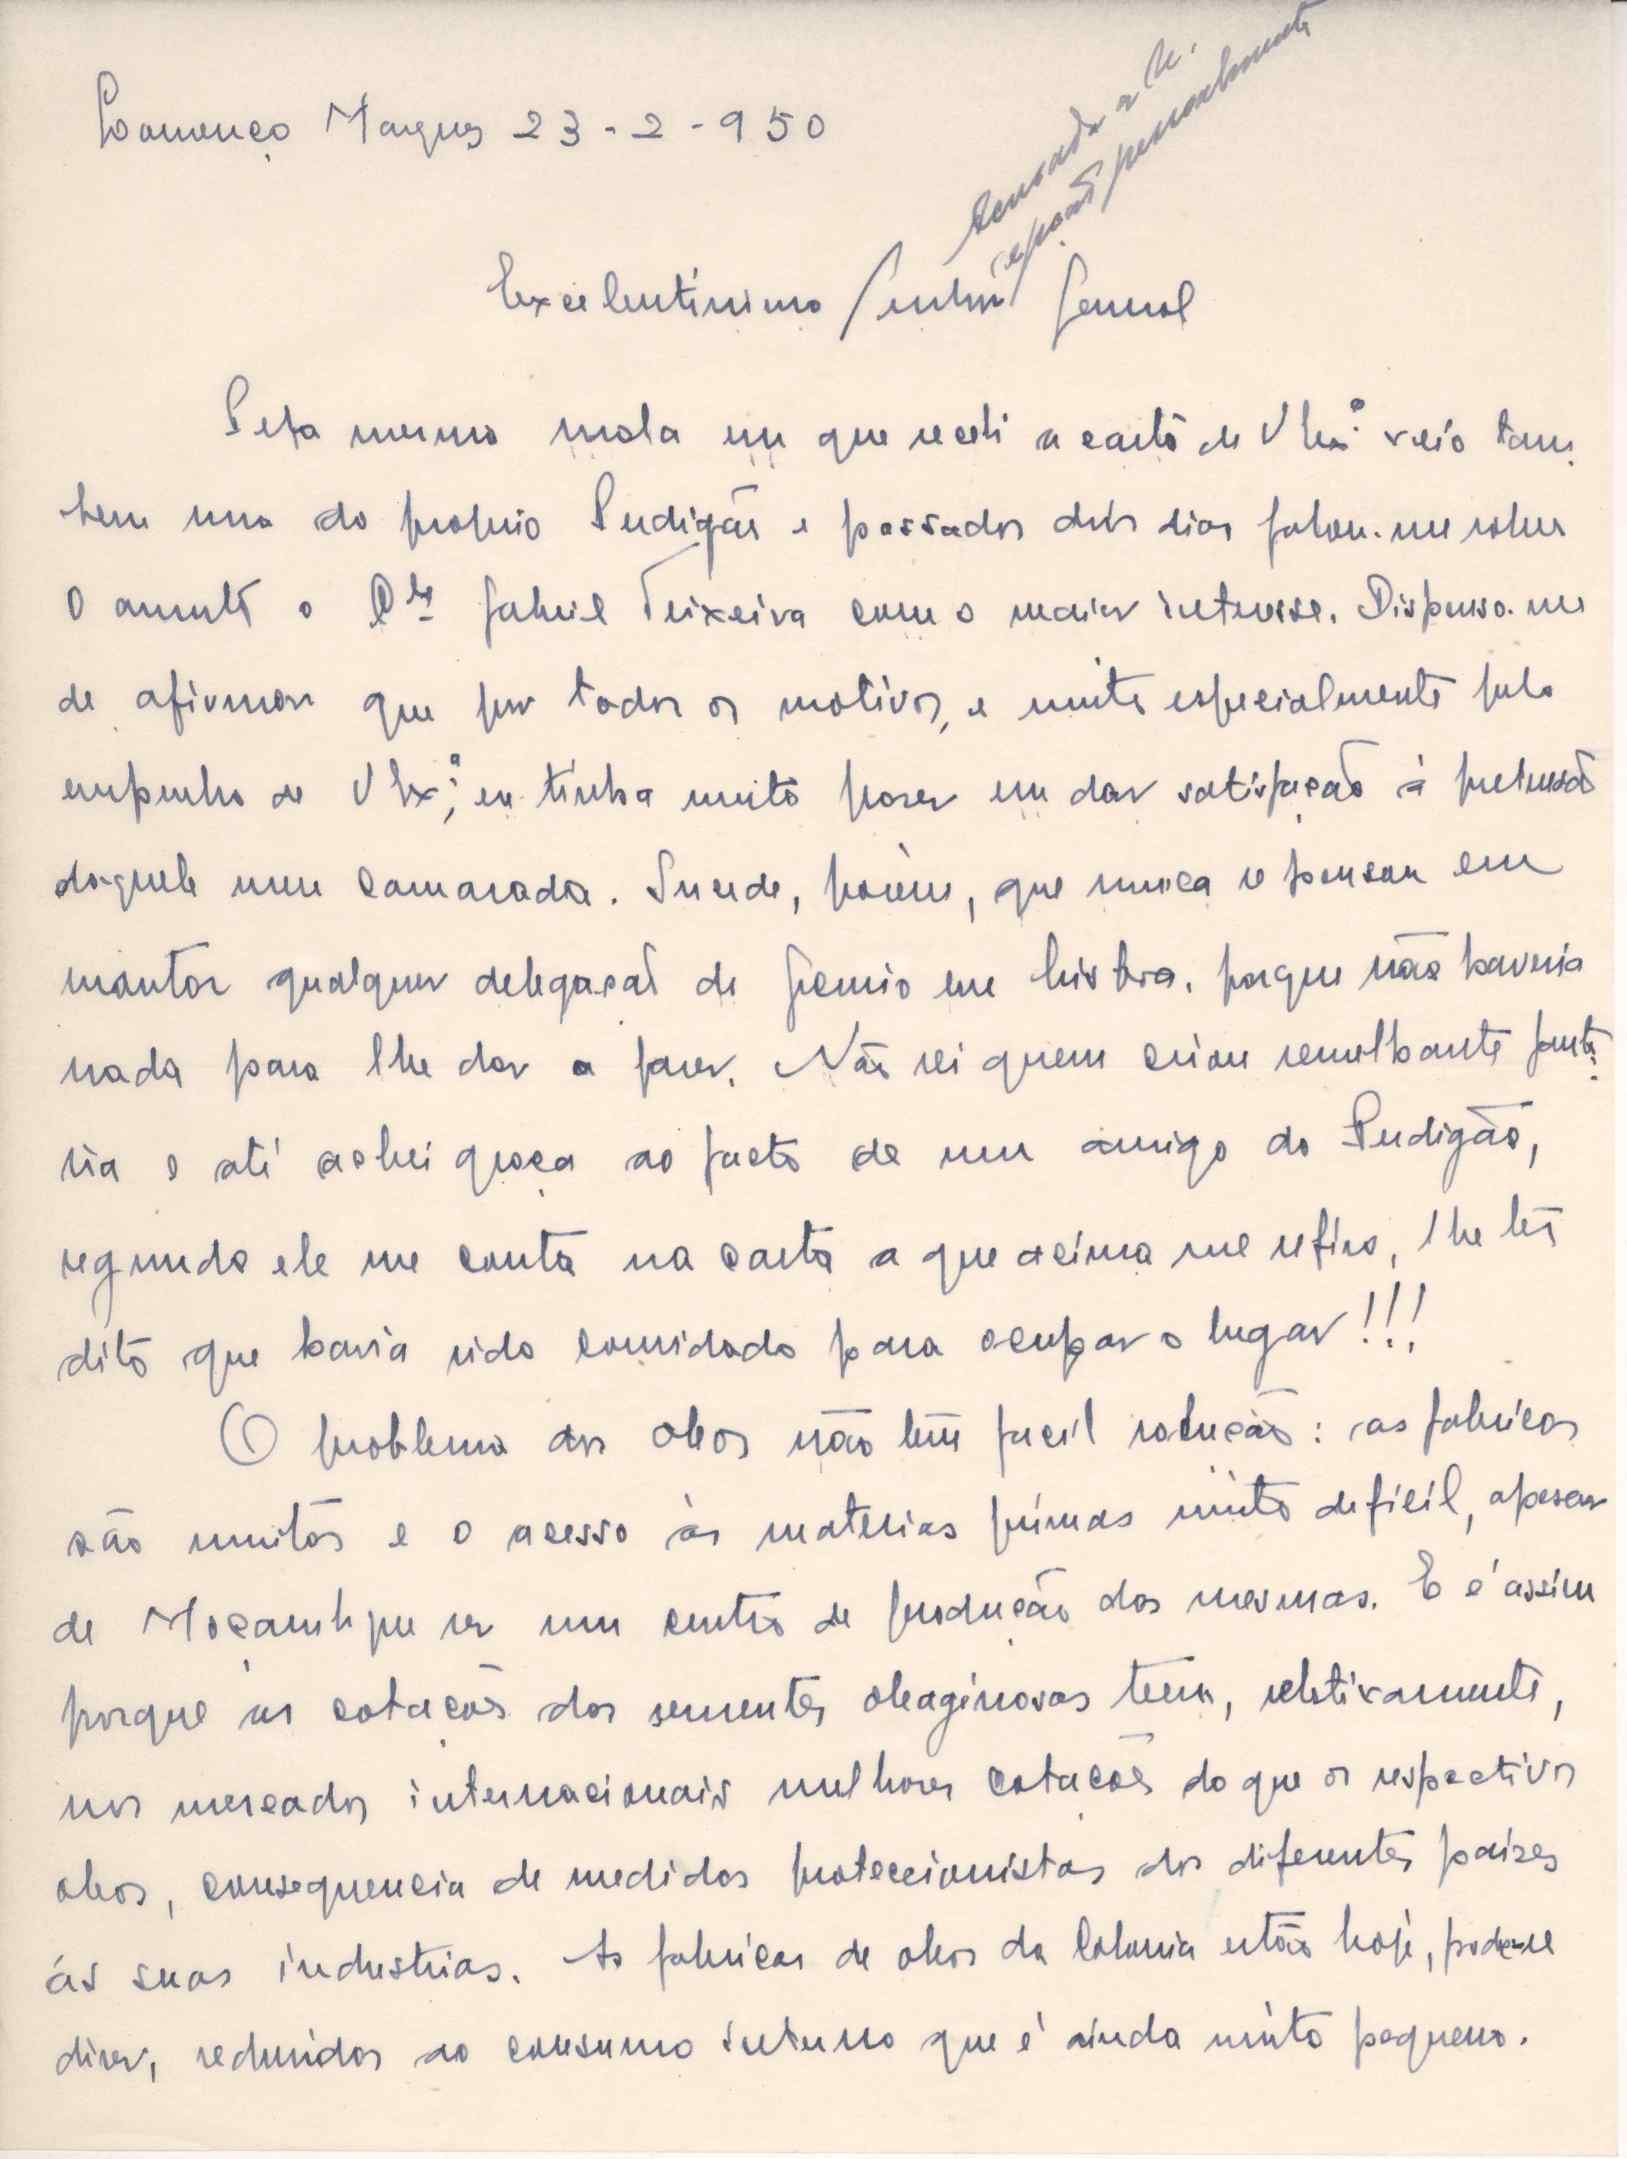 Lourenço Marques 23-2-950
acusada a R.
e pessoalmente
Excelentissimo Senhor General
Pela mesma mala em que recebi a carta de V Ex.ª veio tam-
bem uma do proprio Perdigão e passados dois dias falou-me sobre
o assunto o Cte Gabriel Teixeira com o maior interesse. Dispenso-me
de afirmar que por todos os motivos, e muito especialmente pelo
empenho de V Ex.ª, eu tinha muito prazer em dar satisfação á pretensão
daquele meu camarada. Sucede, porèm, que nunca se pensou em
montar qualquer delegação do Gremio em Lisboa, porque não haveria
nada para lhe dar a fazer. Não sei quem criou semelhante fanta-
sia e até achei graça ao facto de um amigo do Perdigão,
segundo ele me conta na carta a que acima me refiro, lhe ter
dito que havia sido convidado para ocupar o lugar!!!
O problema dos oleos não tem facil solução: as fabricas
são muitas e o acesso às materias primas muito dificil, apesar
de Moçambique ser um centro de produção das mesmas. E é assim
porque as cotações das sementes oleaginosas teem, relativamente,
nos mercados internacionais melhores cotações do que os respectivos
oleos, consequencia de medidas proteccionistas dos diferentes paises
ás suas industrias. As fabricas de oleos da Colonia estão hoje, pode-se
dizer, reduzidas ao consumo interno que é ainda muito pequeno.